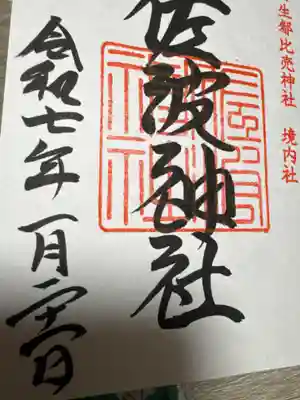 生都比売神社 境内社
佐波神社
令和七年一月二十六日